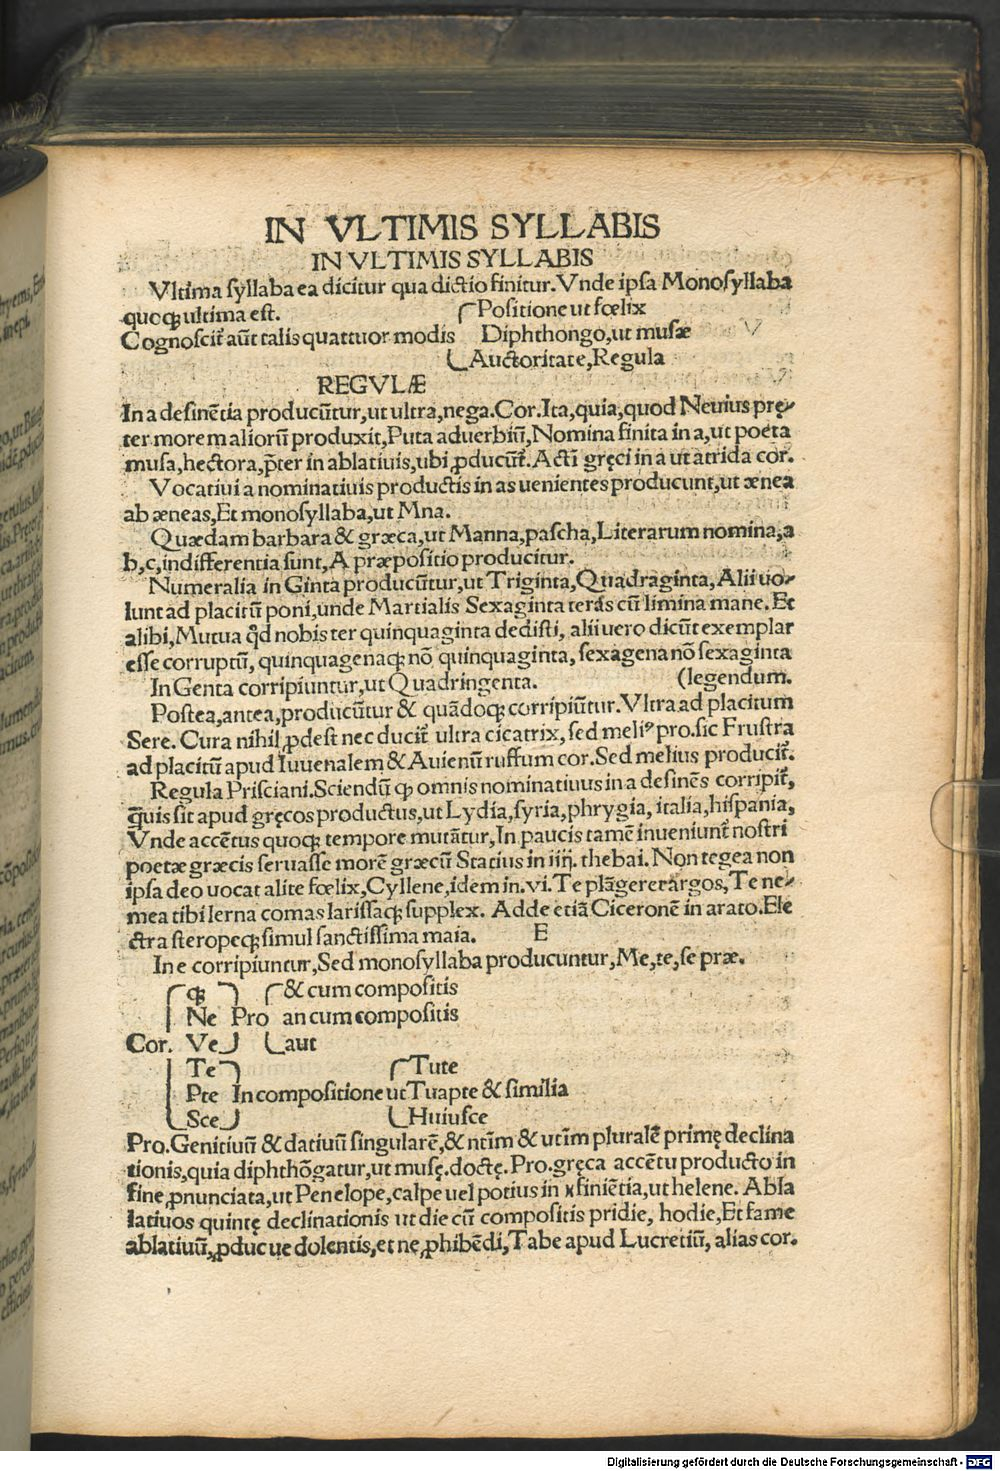 IN VLTIMIS SYLLABIS
IN VLTIMIS SYLLABIS
Vltima ſyllaba ea dicitur qua dictio finitur. Vnde ipſa Monoſyllaba
quoqꝫ ultima eſt. Poſitione ut fœlix
Cognoſcit᷑ aūt talis quattuor modis Diphthongo, ut muſæ
Auctoritate, Regula
REGVLÆ
In a deſinētia producūtur, ut ultra, nega. Cor. Ita, quia, quod Neuius prę-
ter morem aliorū produxit, Puta aduerbiū, Nomina finita in a, ut poeta
muſa, hectora, p̄ter in ablatiuis, ubi ꝓducūt᷑. Acti gręci in a ut atrida cor.
Vocatiui a nominatiuis productis in as uenientes producunt, ut ænea
ab æneas, Et monoſyllaba, ut Mna.
Quædam barbara & græca, ut Manna, paſcha, Literarum nomina, a
b, c, indifferentia ſunt, A præpoſitio producitur.
Numeralia in Ginta producūtur, ut Triginta, Quadraginta, Alii uo-
lunt ad placitū poni, unde Martialis Sexaginta terās cū limina mane. Et
alibi, Mutua qd nobis ter quinquaginta dediſti, alii uero dicūt exemplar
eſſe corruptū, quinquagenaqꝫ nō quinquaginta, ſexagena nō ſexaginta
In Genta corripiuntur, ut Quadringenta. (legendum.
Poſtea, antea, producūtur & quādoqꝫ corripiūtur. Vltra ad placitum
Sere. Cura nihil ꝓdeſt nec ducit᷑ ultra cicatrix, ſed meliꝰ pro. ſic Fruſtra
ad placitū apud Iuuenalem & Auienū ruffum cor. Sed melius producit᷑.
Regula Priſciani. Sciendū ꝙ omnis nominatiuus in a deſinēs corripit᷑,
q̄uis ſit apud gręcos productus, ut Lydia, ſyria, phrygia, italia, hiſpania,
Vnde accētus quoqꝫ tempore mutātur, In paucis tamē inueniunt᷑ noſtri
poetæ græcis ſeruaſſe morē græcū Statius in iiij. thebai. Non tegea non
ipſa deo uocat alite fœlix, Cyllene, idem in. vi. Te plāgeret argos, Te ne-
mea tibi lerna comas lariſſaqꝫ ſupplex. Adde etiā Ciceronē in arato. Ele
ctra ſteropeqꝫ ſimul ſanctiſſima maia. E
In e corripiuntur, Sed monoſyllaba producuntur, Me, te, ſe præ.
qꝫ & cum compoſitis
Ne Pro an cum compoſitis
Cor. Ve aut
Te Tute
Pte In compoſitione ut Tuapte & ſimilia
Sce Huiuſce
Pro. Genitiuū & datiuū ſingularē, & ntīm & utīm pluralē primę declina
tionis, quia diphthōgatur, ut muſę. doctę. Pro. gręca accētu producto in
fine ꝓnunciata, ut Penelope, calpe uel potius in η finiētia, ut helene. Abla
latiuos quintę declinationis ut die cū compoſitis pridie, hodie, Et fame
ablatiuū, ꝓduc ue dolentis, et ne ꝓhibēdi, Tabe apud Lucretiū, alias cor.
Digitalisierung gefördert durch die Deutsche Forschungsgemeinschaft - DFG